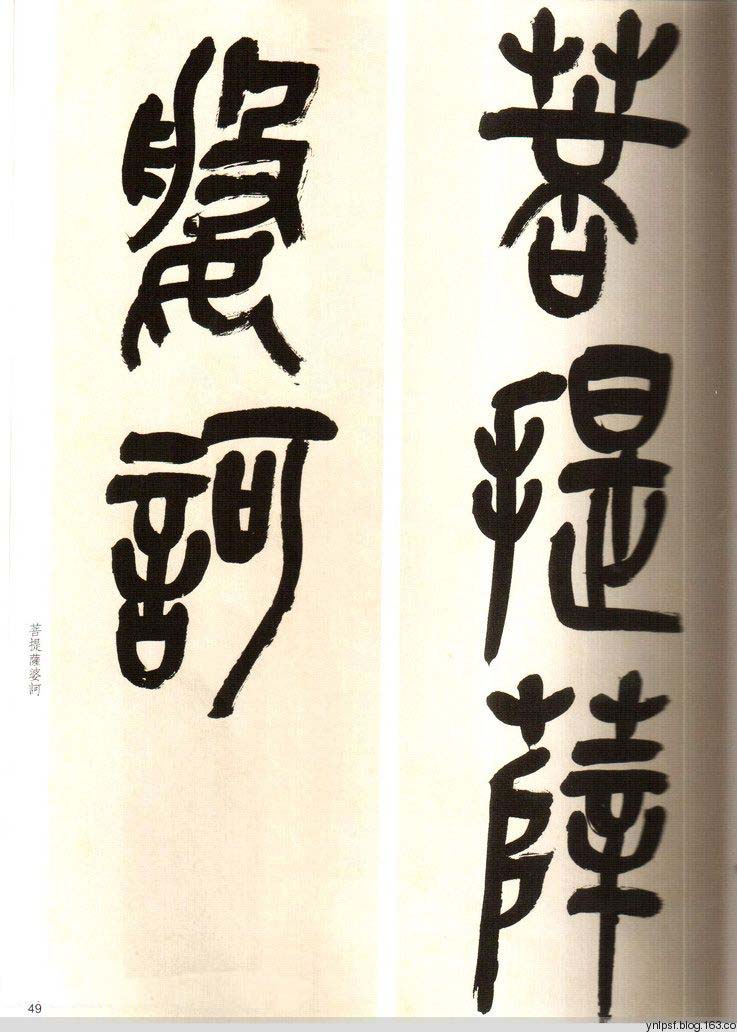 菩提薩
婆訶
菩提薩婆訶
49
ynlpsf.blog.163.co